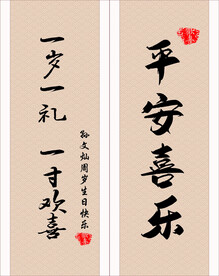 平安喜乐
一岁一礼 一寸欢喜
孙文灿周岁生日快乐